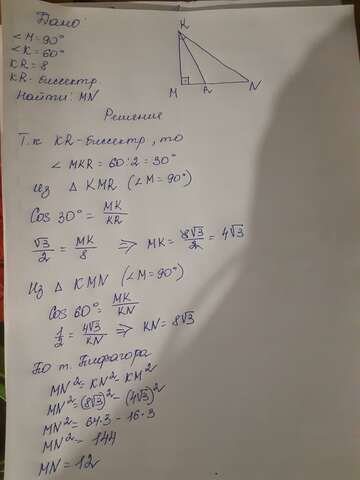 Дано:
∠M = 90°
∠K = 60°
KR = 8
KR - биссектр.
Найти: MN
K
M
R
N
Решение
Т.к KR - биссектр, то
∠MKR = 60:2 = 30°
из △ KMR (∠M = 90°)
Cos 30° = MK/KR
√3/2 = MK/8 ⇒ MK = 8√3/2 = 4√3
Из △ KMN (∠M = 90°)
Cos 60° = MK/KN
1/2 = 4√3/KN ⇒ KN = 8√3
По т. Пифагора
MN² = KN² - KM²
MN² = (8√3)² - (4√3)²
MN² = 64·3 - 16·3
MN² = 144
MN = 12